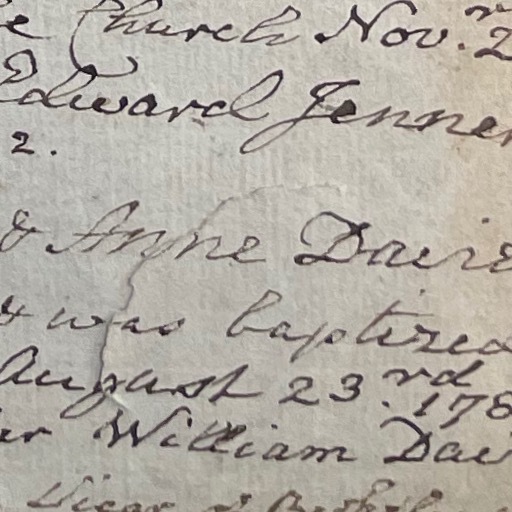 Church Nov.r 2
Edward Jenner
2.
& Anne Davie
& was baptized
August 23.rd 178
William Dav
Vicar of